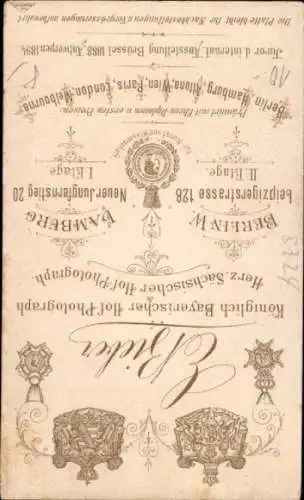 E. Bieber
Königlich Bayerischer Hof-Photograph
Herz. Sächsischer Hof-Photograph
BERLIN W.
HAMBURG
Leipzigerstrasse 128
II. Etage.
Neuer Jungfernstieg 20
I. Etage.
Prämiirt mit Ehren-Diplomen u. ersten Preisen
Berlin, Hamburg, Altona, Wien, Paris, London, Melbourne.
Juror d. internat. Ausstellung Brüssel 1888, Antwerpen 1894.
Die Platte bleibt für Nachbestellungen u. Vergrösserungen aufbewahrt